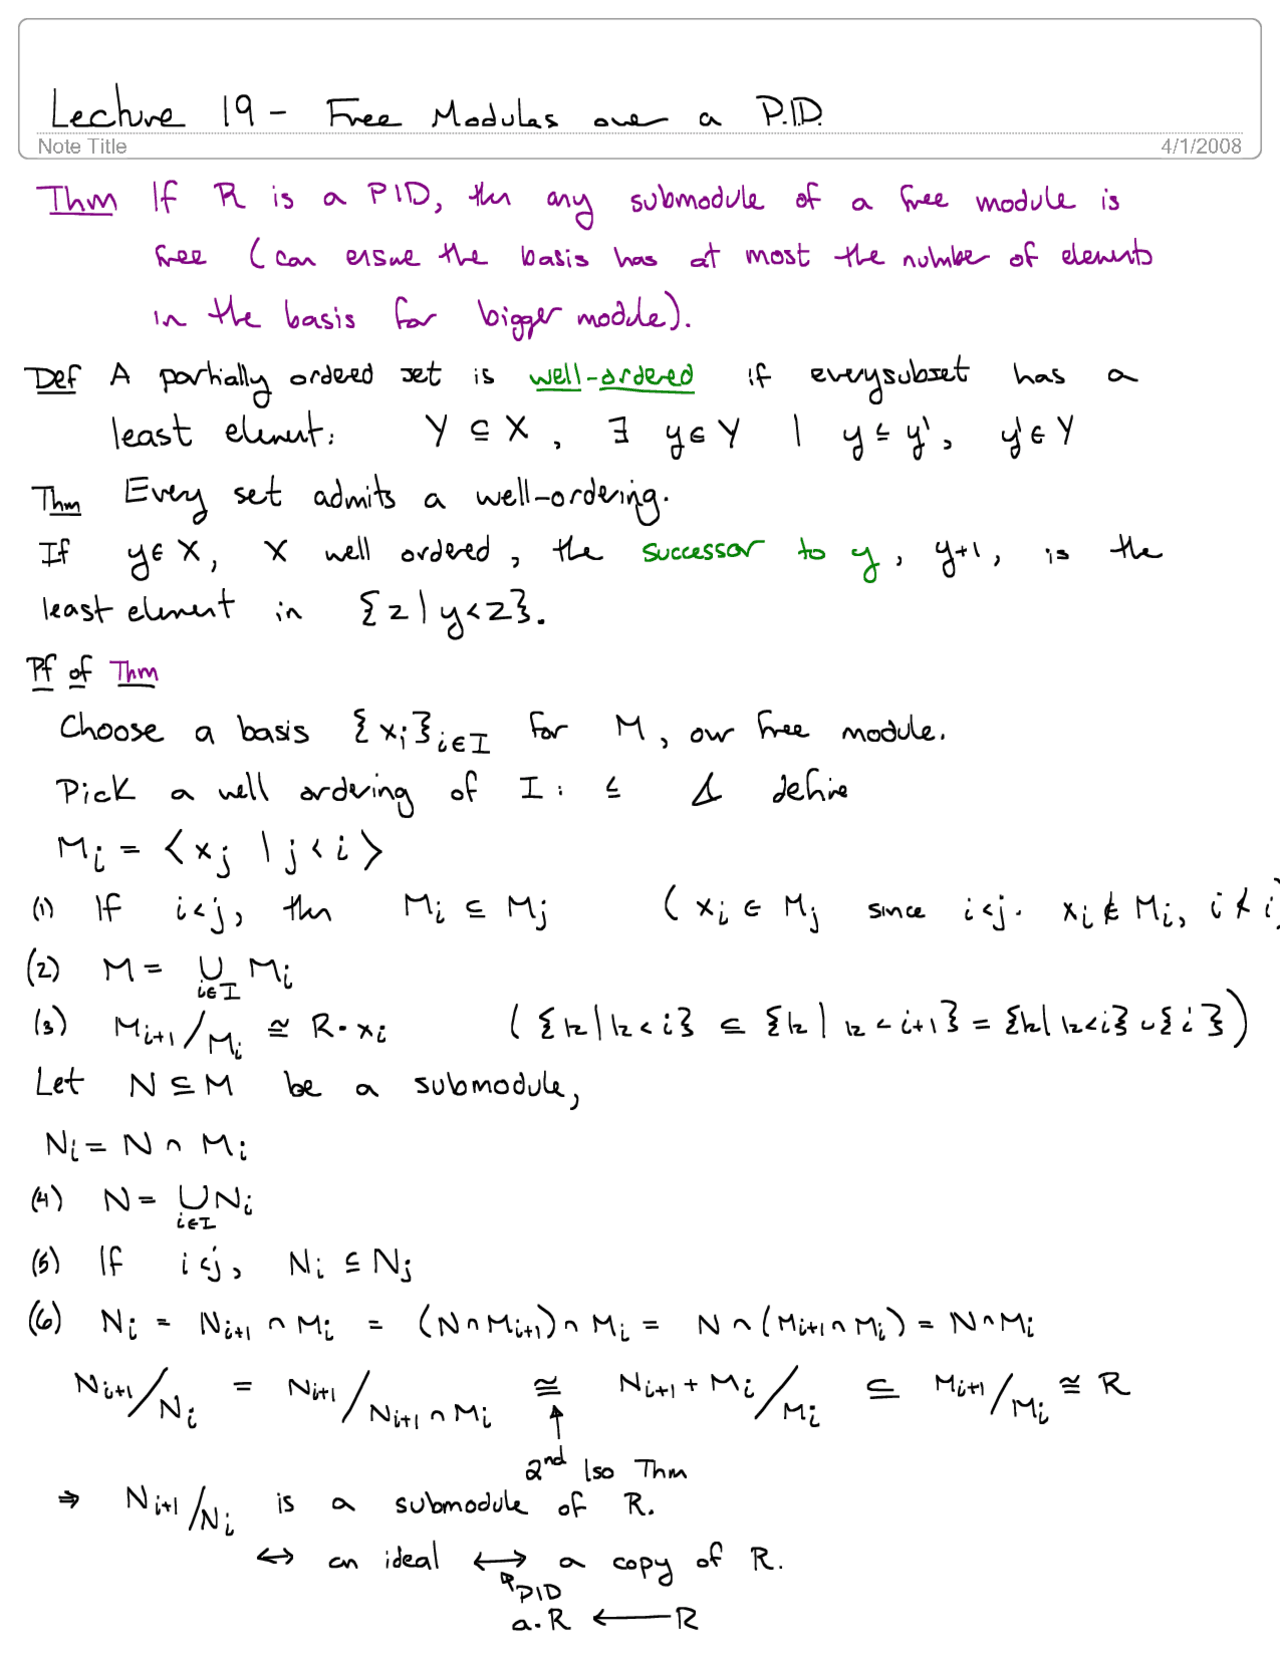 Lecture 19 - Free Modules over a P.I.D.
Note Title 4/1/2008
Thm If R is a PID, then any submodule of a free module is
free (can ensure the basis has at most the number of elements
in the basis for bigger module).
Def A partially ordered set is well-ordered if every subset has a
least element: Y ⊆ X, ∃ y ∈ Y | y ≤ y', y' ∈ Y
Thm Every set admits a well-ordering.
If y ∈ X, X well ordered, the successor to y, y+1, is the
least element in {z | y < z}.
Pf of Thm
Choose a basis {x_i}_{i∈I} for M, our free module.
Pick a well ordering of I: ≤ & define
M_i = ⟨x_j | j < i⟩
(1) If i<j, then M_i ⊆ M_j (x_i ∈ M_j since i<j. x_i ∉ M_i, i ≮ i)
(2) M = ∪_{i∈I} M_i
(3) M_{i+1}/M_i ≅ R·x_i ({k | k < i} ⊆ {k | k < i+1} = {k | k < i} ∪ {i})
Let N ⊆ M be a submodule,
N_i = N ∩ M_i
(4) N = ∪_{i∈I} N_i
(5) If i<j, N_i ⊆ N_j
(6) N_i = N_{i+1} ∩ M_i = (N ∩ M_{i+1}) ∩ M_i = N ∩ (M_{i+1} ∩ M_i) = N ∩ M_i
N_{i+1}/N_i = N_{i+1}/N_{i+1} ∩ M_i ≅ N_{i+1} + M_i/M_i ⊆ M_{i+1}/M_i ≅ R
↑
2nd Iso Thm
⇒ N_{i+1}/N_i is a submodule of R.
↔ an ideal ↔ a copy of R.
PID
a·R ← R